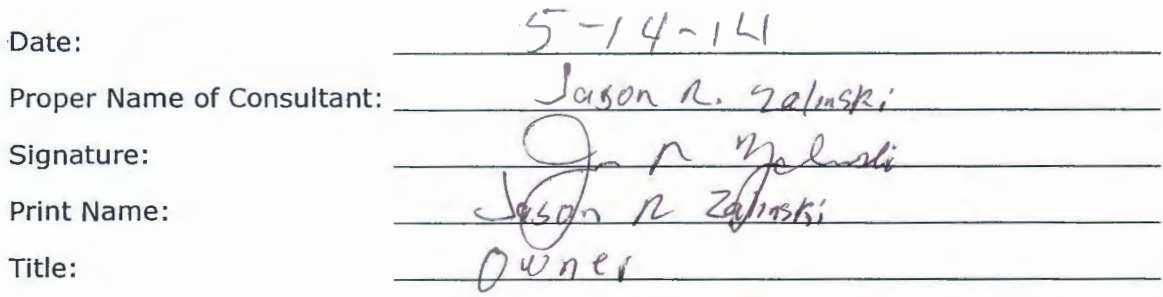 Date: 5-14-14
Proper Name of Consultant: Jason R. Zalinski
Signature: Jason R Zalinski
Print Name: Jason R Zalinski
Title: Owner